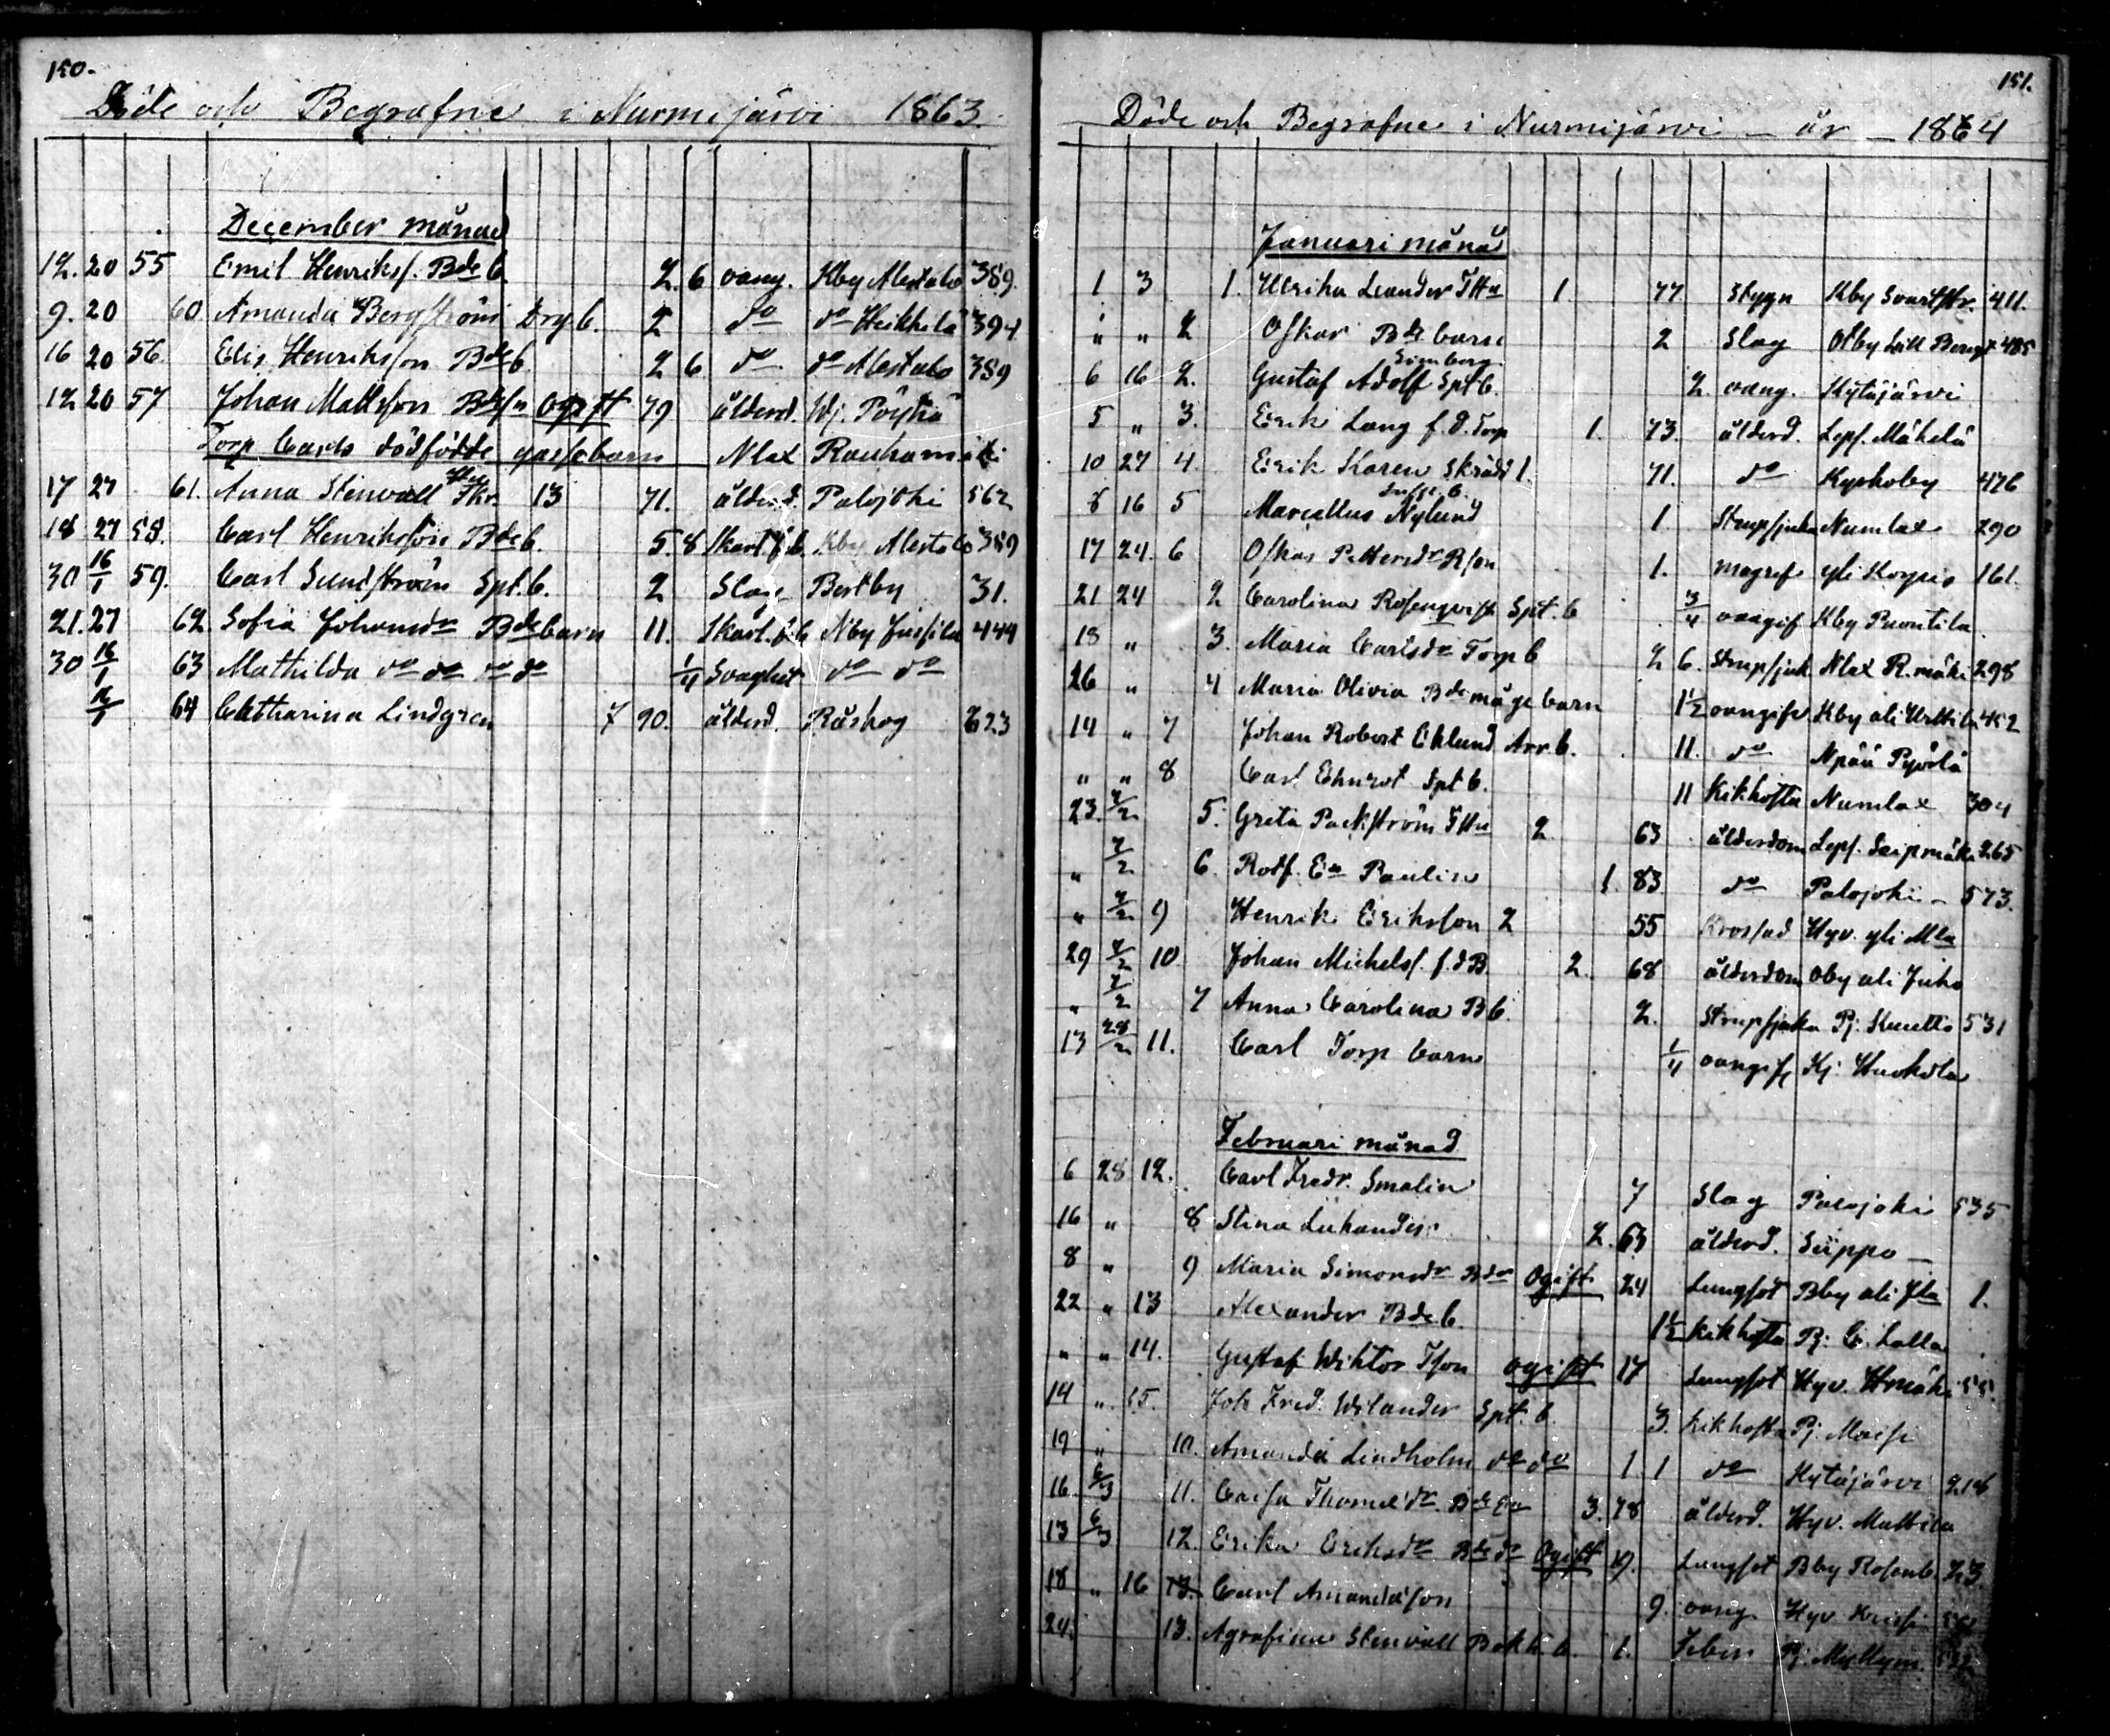 150.
Döde och Begrafne i Nurmijärvi 1863.
December månad
12. 20 55 Emil Henriksf. Bde b. 2. 6 oang. Kby Alestalo 389.
9. 20 60 Amanda Bergström Drg b. 2 do do Heikkilä 394
16 20 56. Elis Henriksson Bde b 2 6 do do Alestalo 389
12 20 57 Johan Mattsson Bdesn ogift 79 ålderd. Wj. Pöytiä
Torp barns dödfödde gossebarn Nlax Rauhamäki
17 27 61. Anna Stenvall 13 71. ålderd. Palojoki 562
18 27 58. Carl Henriksson Bde b. 5. 8 Skarl. f. b. Kby Alestalo 389
30 16/1 59. Carl Sundström Spt. b. 2 Slag Bertby 31.
21. 27 62. Sofia Johansdr Bde barn 11. Skarl. f. b. Nby Jussila 444
30 16/1 63 Mathilda do do do do 1/4 Svaghet do do
16/1 64 Catharina Lindgren 7 90. ålderd. Råskog 623
151.
Döde och Begrafne i Nurmijärvi – år – 1864
Januari månad
1 3 1. Ulrika Leander 1 77 Stygn Kby 411.
" " 2 Oskar Bde barn 2 Slag 485
6 16 2. Gustaf Adolf Simberg Spt b. 2. oang. Kytäjärvi
5 " 3. Erik Lang f. d. Torp 1. 73. ålderd. Leps. Mäkelä
10 24 4. Erik Koren Skrädd 1. 71. do Kyrkoby 476
8 16 5 Marcellus Nylund 1 Strupsjuka Numlax 290
17 24. 6 Oskar Pettersdr 1. magref yli Korpis 161.
21 24 2 Carolina Rosenqvist Spt. b 3/4 oangif Kby Puontila
13 " 3. Maria Carlsdr Torp b 2 6. Strupsjuk Nlax R.mäki 298
26 " 4 Maria Olivia Bde måge barn 1½ oangife Kby ali Urttila 452
14 " 7 Johan Robert Eklund Arr. b. 11. do Npää Pyörlä
" " 8 Carl Spt b. 11 Kikhosta Numlax 304
23. 7/2 5. Greta Packström 2 63 ålderdom Leps. 265
" 7/2 6. Rotf. Ea Paulin 1. 83 do Palojoki – 573.
" 7/2 9 Henrik Eriksson 2 55 Hyv. yli Mla
29 7/2 10. Johan Michelsf. f. d B. 2. 68 ålderdom Oby ali Juho
" 7/2 7 Anna Carolina B b. 2. Strupsjuka Pj. 531
13 28/2 11. Carl Torp barn 1/4 oangif Kj. Huokola
Februari månad
6 28 12. Carl Fredr. Smalin 7 Slag Palojoki 535
16 " 8. Stina Lukander 2. 63 ålderd. Siippo –
8 " 9 Maria Simonsdr Bdr Ogift 24 Lungsot Bby ali Jla 1.
22 " 13 Alexander Bde b. 1½ Kikhosta Pj. C. Lalla
" " 14. Gustaf Wiktor Tson ogift 17 Lungsot Hyv.
14 " 15. Joh Fred. Wilander Spt. b. 3. Kikhosta Pj.
19 " 10. Amanda Lindholm do do 1. 1 do Kytäjärvi 218
16. 6/3 11. Caisa Thomasdr Bde Ea 3. 78 ålderd. Hyv. Mattila
13 6/3 12. Erika Eriksdr Bde dr Ogift 19. Lungsot Bby Rosenb. 23
18 " 16 13. Carl Amandason 9. oang. Hyv.
24. 13. Agrafina Stenvall b. 1. Feber Pj.